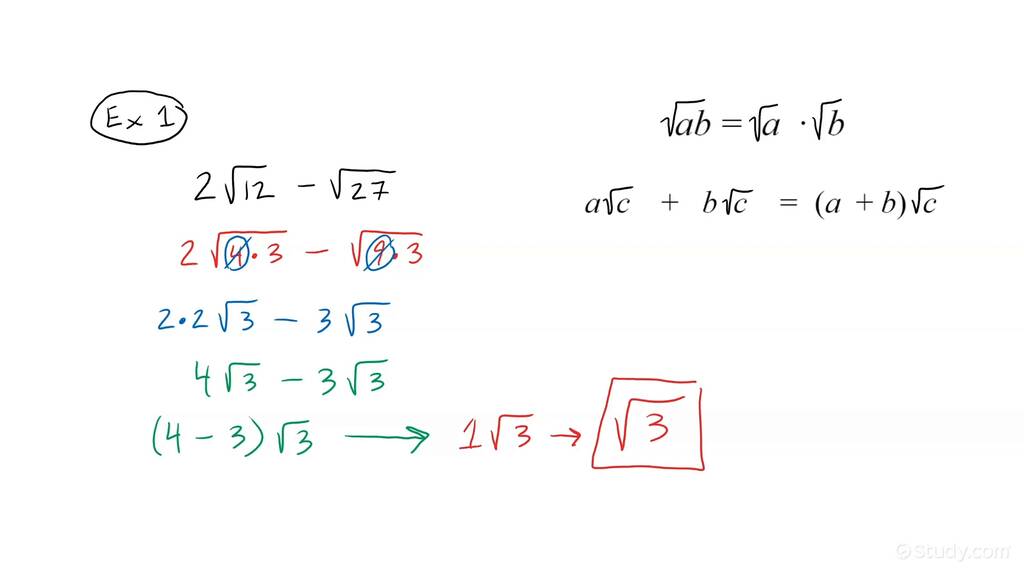 Ex 1
√ab = √a · √b
2√12 − √27
a√c + b√c = (a + b)√c
2√4·3 − √9·3
2·2√3 − 3√3
4√3 − 3√3
(4 − 3)√3 → 1√3 → √3
©Study.com